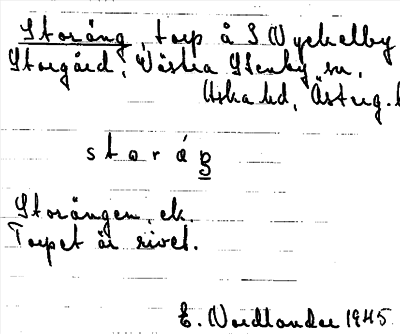 Storäng, torp å S Nyckelby
Storgård, Västra Stenby sn,
Aska hd, Österg.
s t o r á ŋ
Storängen, ek.
Torpet är rivet.
E. Nordlander 1945